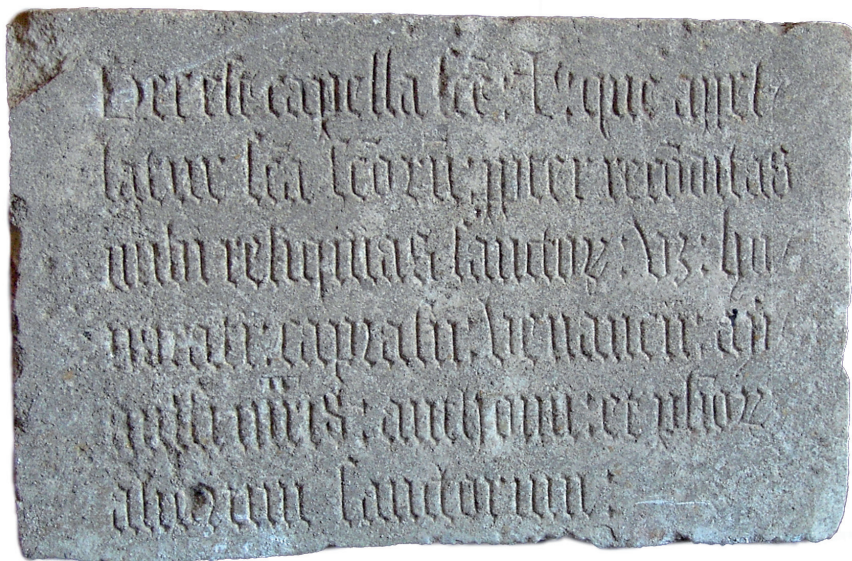 Hec est capella scē: V: que appel-
latur scā scōrū: ꝓpter recōditas
inibi reliquias sanctoꝝ: vꝫ: ho-
norati: caprasii: venancii: ay-
mr̄is: anthonii: et
aliorum sanctorum: